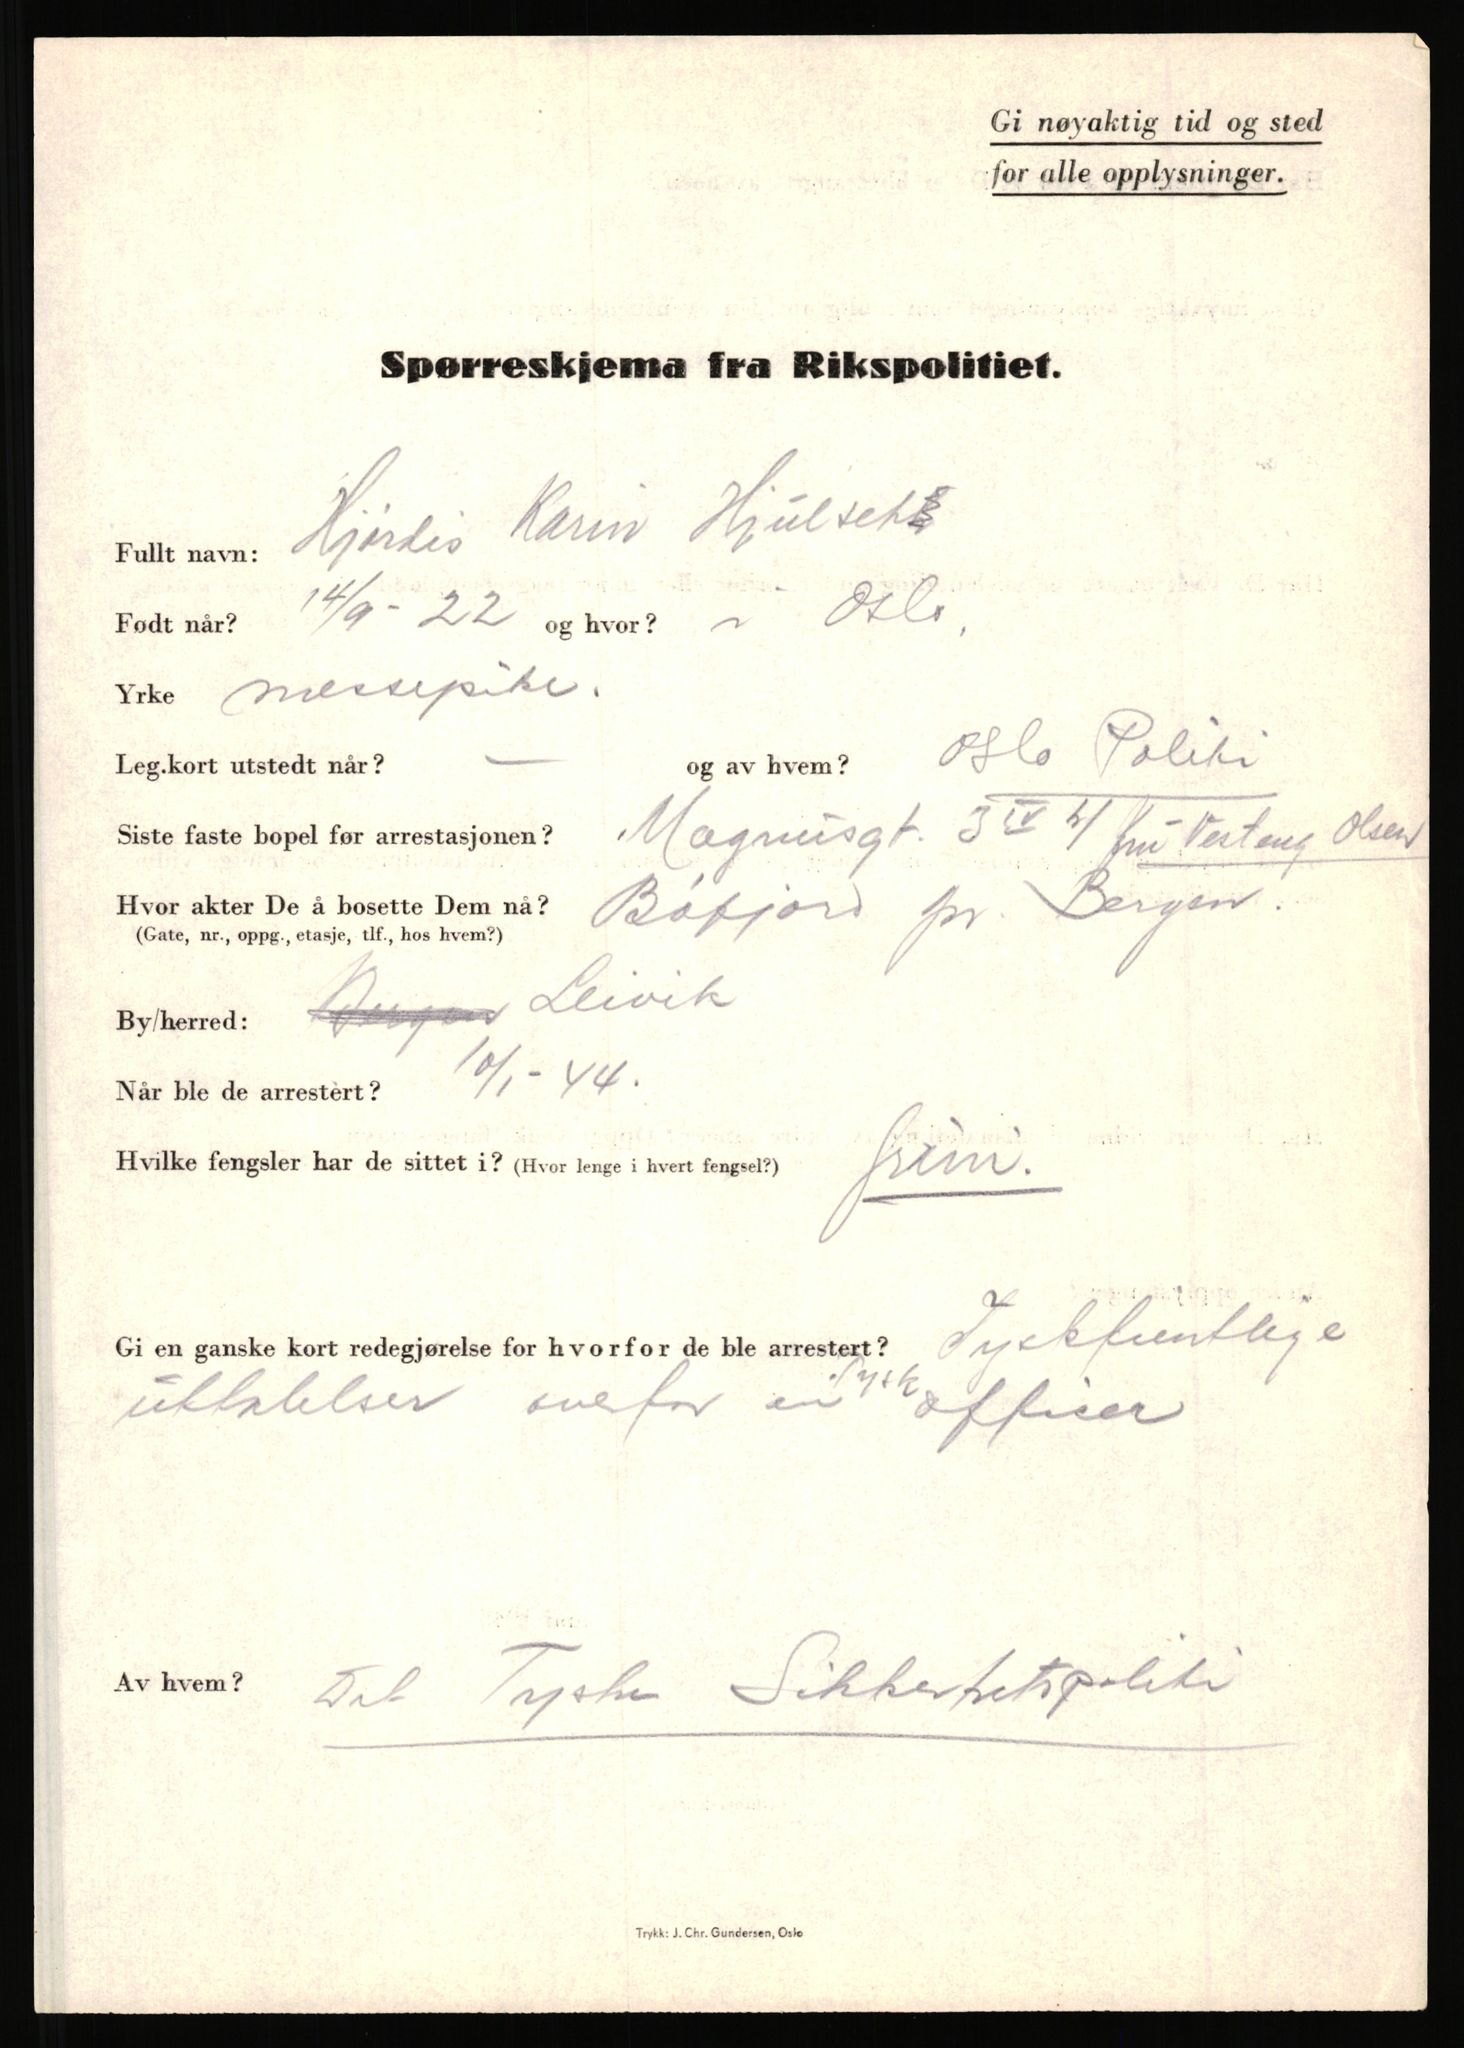 Gi nøyaktig tid og sted
for alle opplysninger.
Spørreskjema fra Rikspolitiet.
Fullt navn: Hjördis Karin Hjülseth
Født når? 14/9 - 22 og hvor? i Oslo.
Yrke messepike.
Leg.kort utstedt når? — og av hvem? Oslo Politi
Siste faste bopel før arrestasjonen? Magnusgt. 3 IV h/ frü Vesteng Olsen
Hvor akter De å bosette Dem nå? Böfjord pr. Bergen.
(Gate, nr., oppg., etasje, tlf., hos hvem?)
By/herred: Bergen Leivik
Når ble de arrestèrt? 10/1 - 44.
Hvilke fengsler har de sittet i? (Hvor lenge i hvert fengsel?) Grini.
Gi en ganske kort redegjørelse for hvorfor de ble arrestert? Tyskfientlige
üttalelser overfor en Tysk officer
Av hvem? Det Tyske Sikkerhetspoliti
Trykk: J. Chr. Gundersen, Oslo